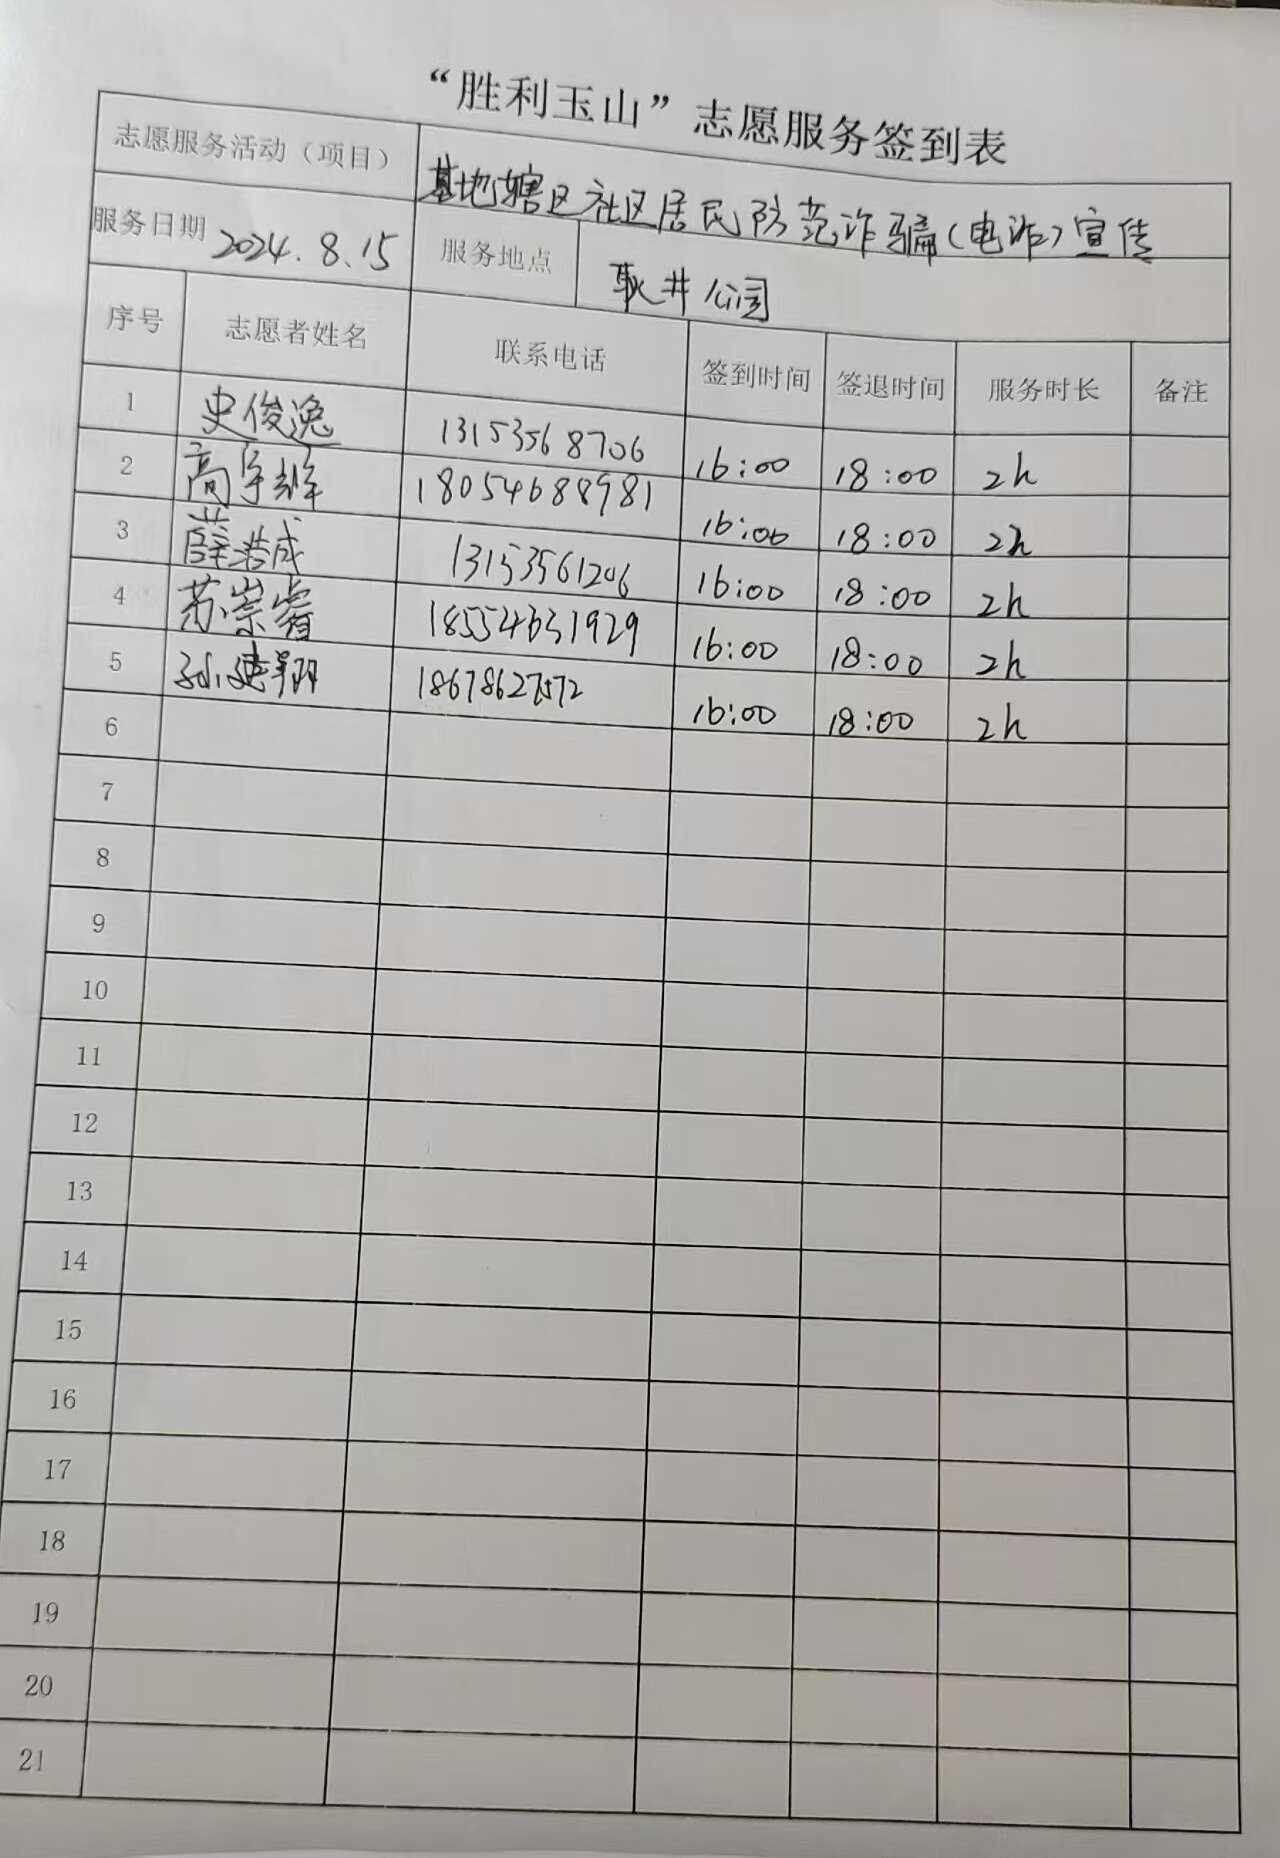 “胜利玉山”志愿服务签到表
志愿服务活动（项目） 基地辖区社区居民防范诈骗（电诈）宣传
服务日期 2024.8.15 服务地点 耿井公园
序号 志愿者姓名 联系电话 签到时间 签退时间 服务时长 备注
1 史俊逸 13153568706 16:00 18:00 2h
2 高宇辉 18054688981 16:00 18:00 2h
3 薛浩成 13153561206 16:00 18:00 2h
4 苏崇睿 18554631929 16:00 18:00 2h
5 孙建翔 18678627572 16:00 18:00 2h
6
7
8
9
10
11
12
13
14
15
16
17
18
19
20
21